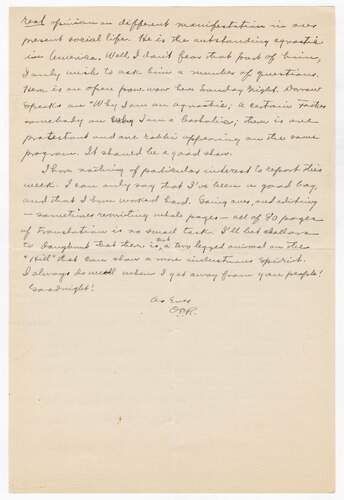 real opinion on different manifestation in our
present social life. He is the outstanding agnostic
in America. Well, I don't fear that part of him,
I only wish to ask him a number of questions.
There is an open forum here Sunday Night. Darrow
speaks on "Why I am an agnostic; A certain Father
somebody on Why I am a Catholic; there is one
protestant and one rabbi appearing on the same
program. It should be a good show.
I have nothing of particular interest to report this
week. I can only say that I've been a good boy,
and that I have worked hard. Going over, and editing
– sometimes rewriting whole pages – all of 80 pages
of translation is no small task. I'll bet dollars
to doughnuts that there is not a two legged animal on the
"Hill" that can show a more industrious spirit.
I always do well when I get away from you people!
Goodnight!
As Ever
O.O.R.